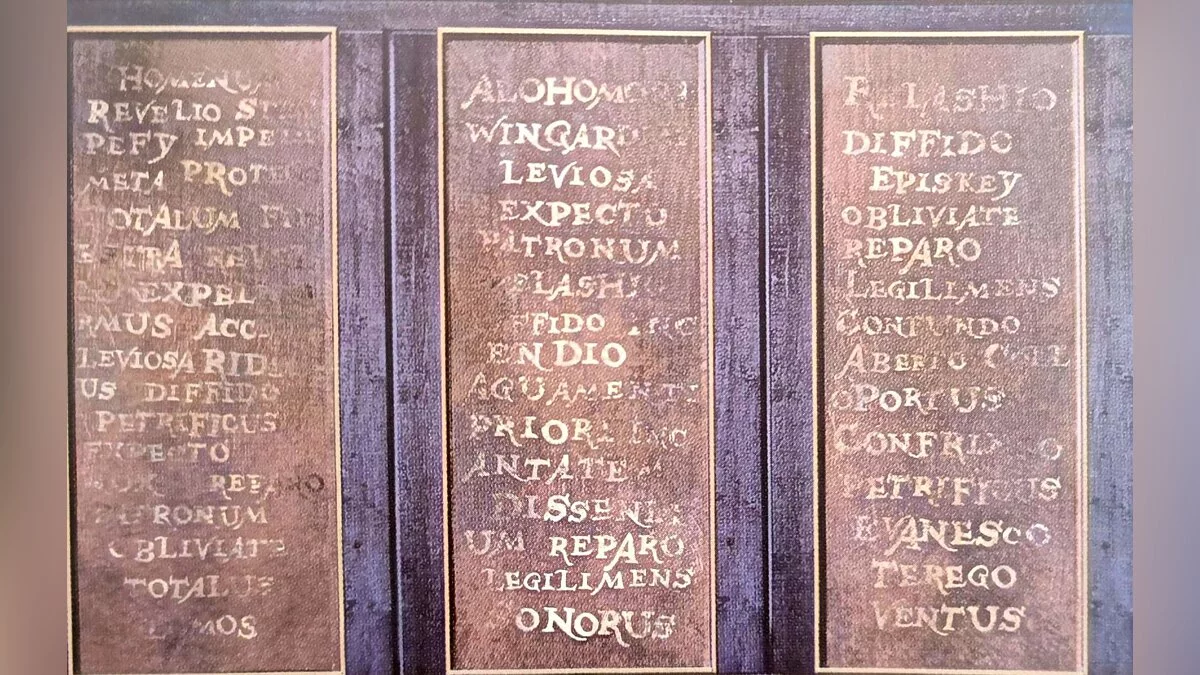 HOMENU
REVELIO S
PEFY IMPE
META PROTE
OTALUM F
RE
EXPEL
RMUS ACC
LEVIOSA RID
US DIFFIDO
PETRIFICUS
EXPECTO
REPARO
PATRONUM
OBLIVIATE
TOTALUS
MOS
ALOHOMO
WINGARD
LEVIOSA
EXPECTO
PATRONUM
ELASHI
FFIDO INC
ENDIO
AQUAMENTI
PRIORI INC
ANTATE M
DISSENI
UM REPARO
LEGILIMENS
ONORUS
R LASHIO
DIFFIDO
EPISKEY
OBLIVIATE
REPARO
LEGILIMENS
CONFUNDO
ABERTO COLL
OPORTUS
CONFRI O
PETRIFICUS
EVANESCO
TEREGO
VENTUS